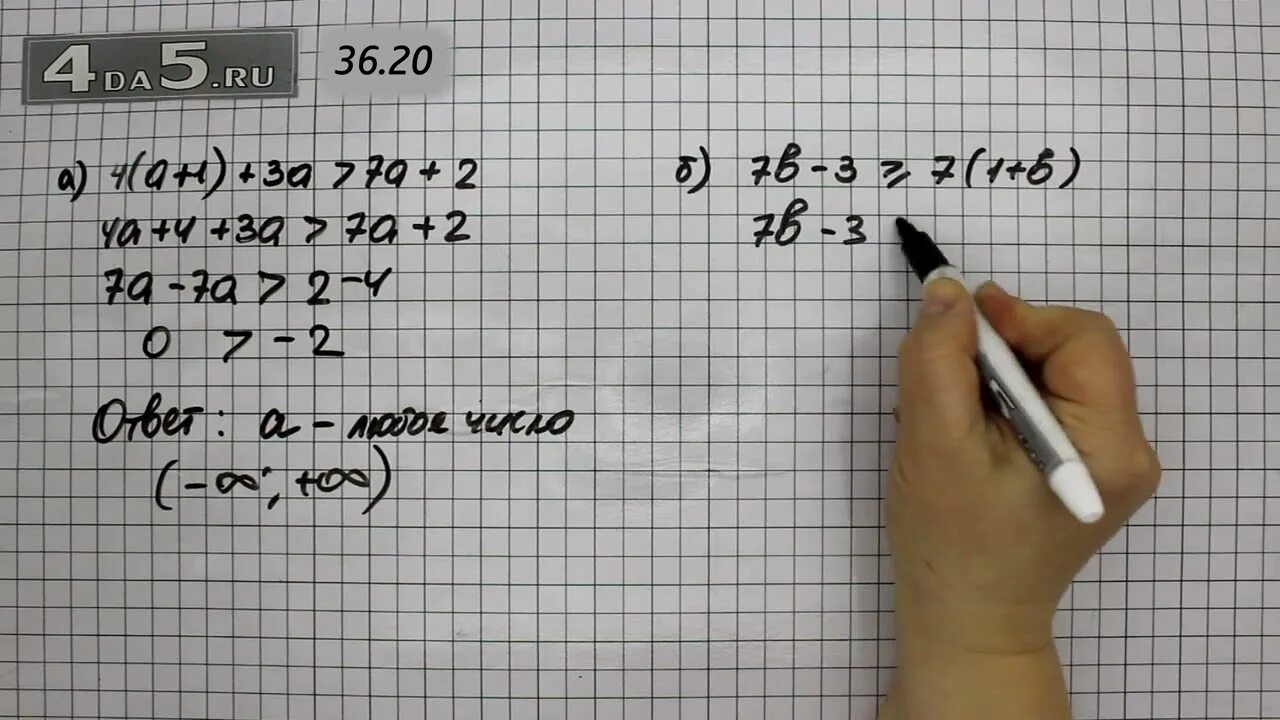 4DA5.RU
36.20
а) 4(a+1) + 3a > 7a + 2
4a + 4 + 3a > 7a + 2
7a - 7a > 2 - 4
0 > - 2
Ответ: a - любое число
(-∞; +∞)
б) 7b - 3 ⩾ 7(1+b)
7b - 3